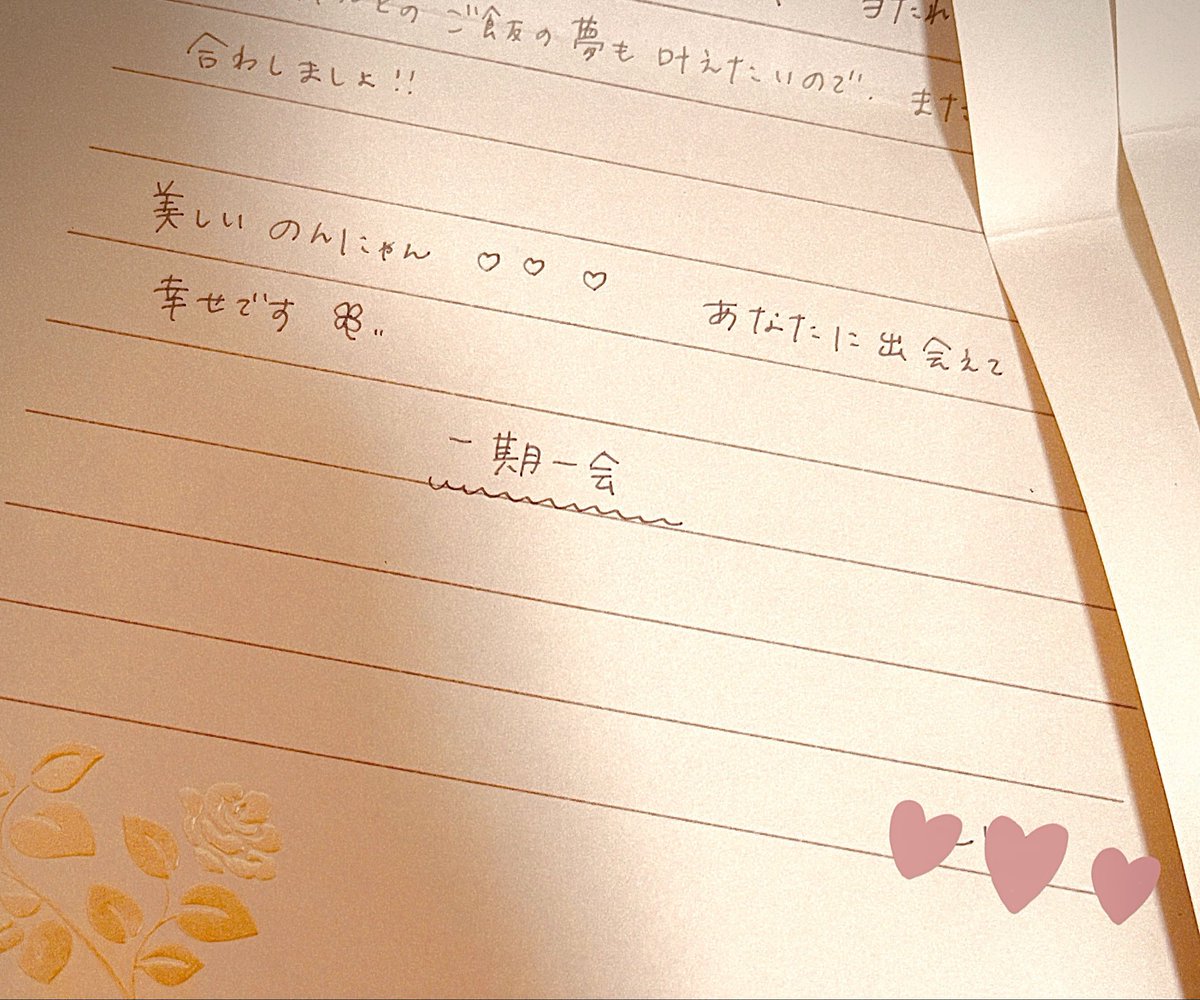 との ご飯の 夢も 叶えたいので. また
合わしましょ!!
美しい のんにゃん ♡ ♡ ♡ あなたに 出会えて
幸せです
一期一会